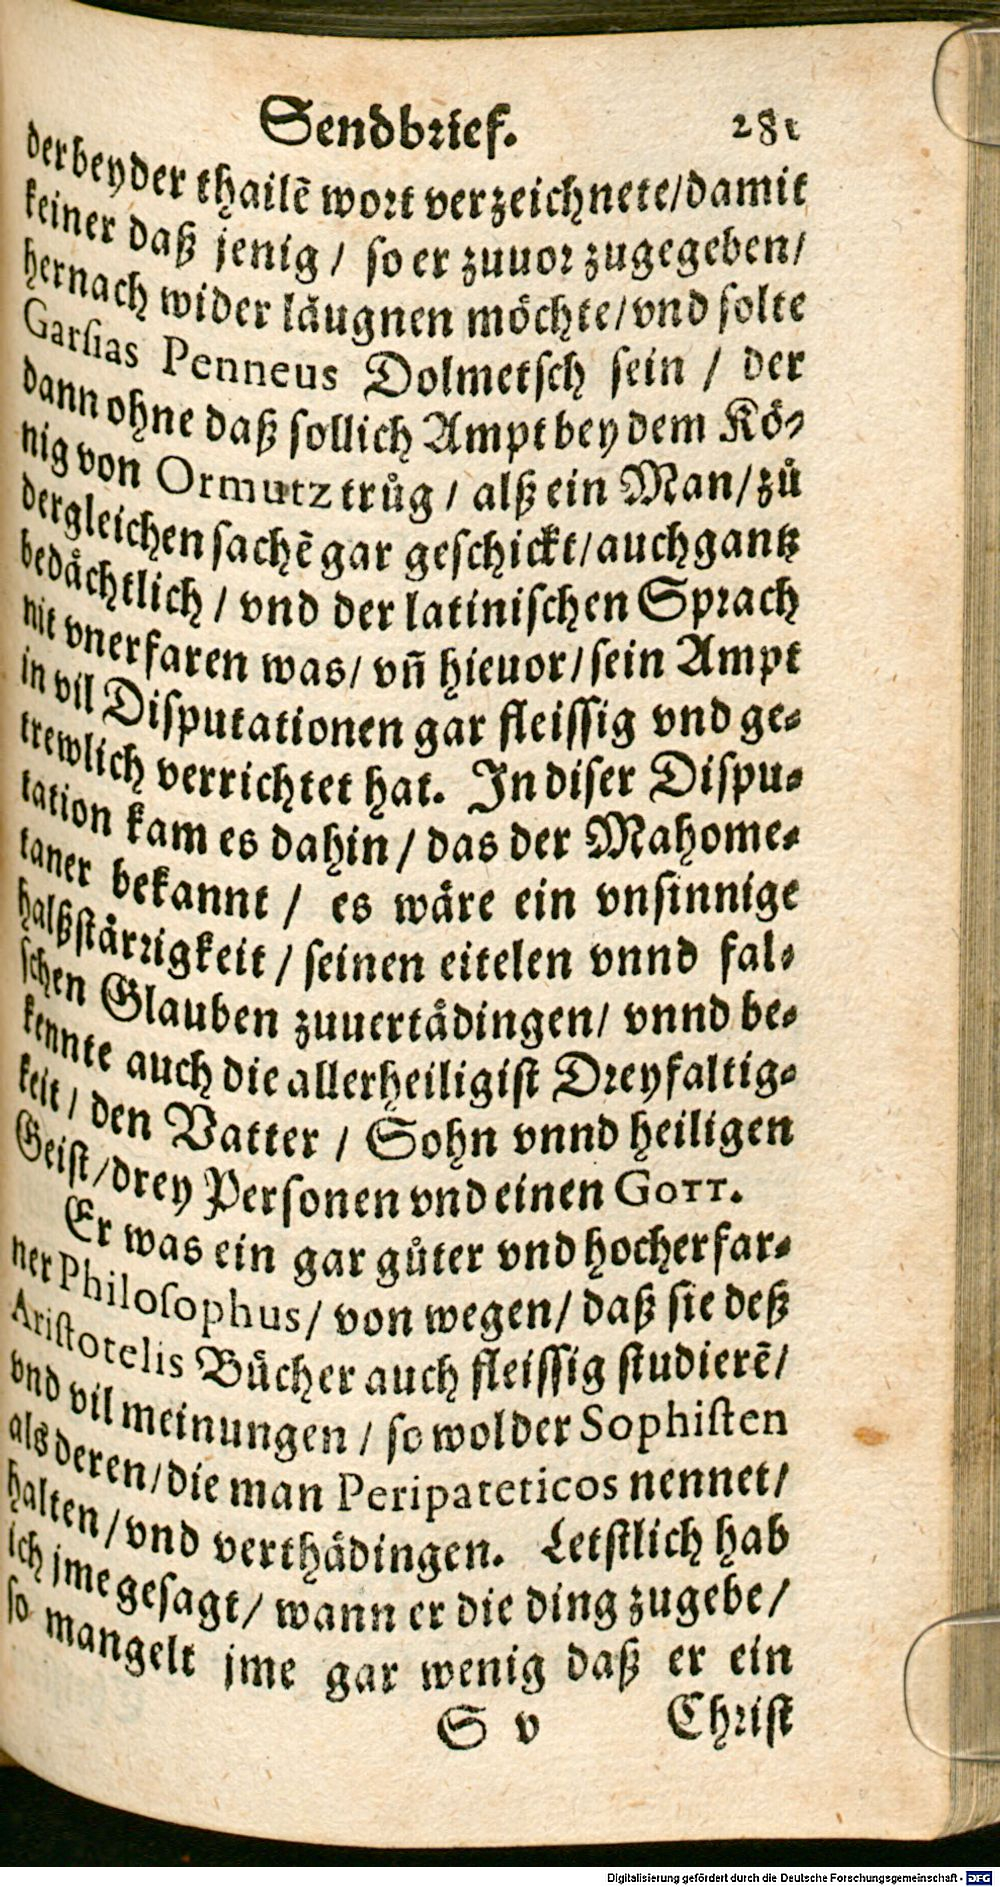 Sendbrief. 281
der beyder thailē wort verzeichnete/damit
keiner daß jenig / so er zuuor zugegeben/
hernach wider läugnen möchte/vnd solte
Garsias Penneus Dolmetsch sein / der
dann ohne daß sollich Ampt bey dem Kö-
nig von Ormutz trůg / alß ein Man/zů
dergleichen sachē gar geschickt/auch gantz
bedåchtlich / vnd der latinischen Sprach
nit vnerfaren was/ vñ hieuor/sein Ampt
in vil Disputationen gar fleissig vnd ge-
trewlich verrichtet hat. In diser Dispu-
tation kam es dahin / das der Mahome-
taner bekannt / es wäre ein vnsinnige
halßstårrigkeit / seinen eitelen vnnd fal-
schen Glauben zuuertådingen/ vnnd be-
kennte auch die allerheiligist Dreyfaltig-
keit / den Vatter / Sohn vnnd heiligen
Geist/drey Personen vnd einen GOTT.
Er was ein gar gůter vnd hocherfar-
ner Philosophus/ von wegen/ daß sie deß
Aristotelis Bücher auch fleissig studierē/
vnd vil meinungen / so wol der Sophisten
als deren/die man Peripateticos nennet/
halten/vnd verthådingen. Letstlich hab
ich jme gesagt/ wann er die ding zugebe/
so mangelt jme gar wenig daß er ein
S v Christ
Digitalisierung gefördert durch die Deutsche Forschungsgemeinschaft - DFG